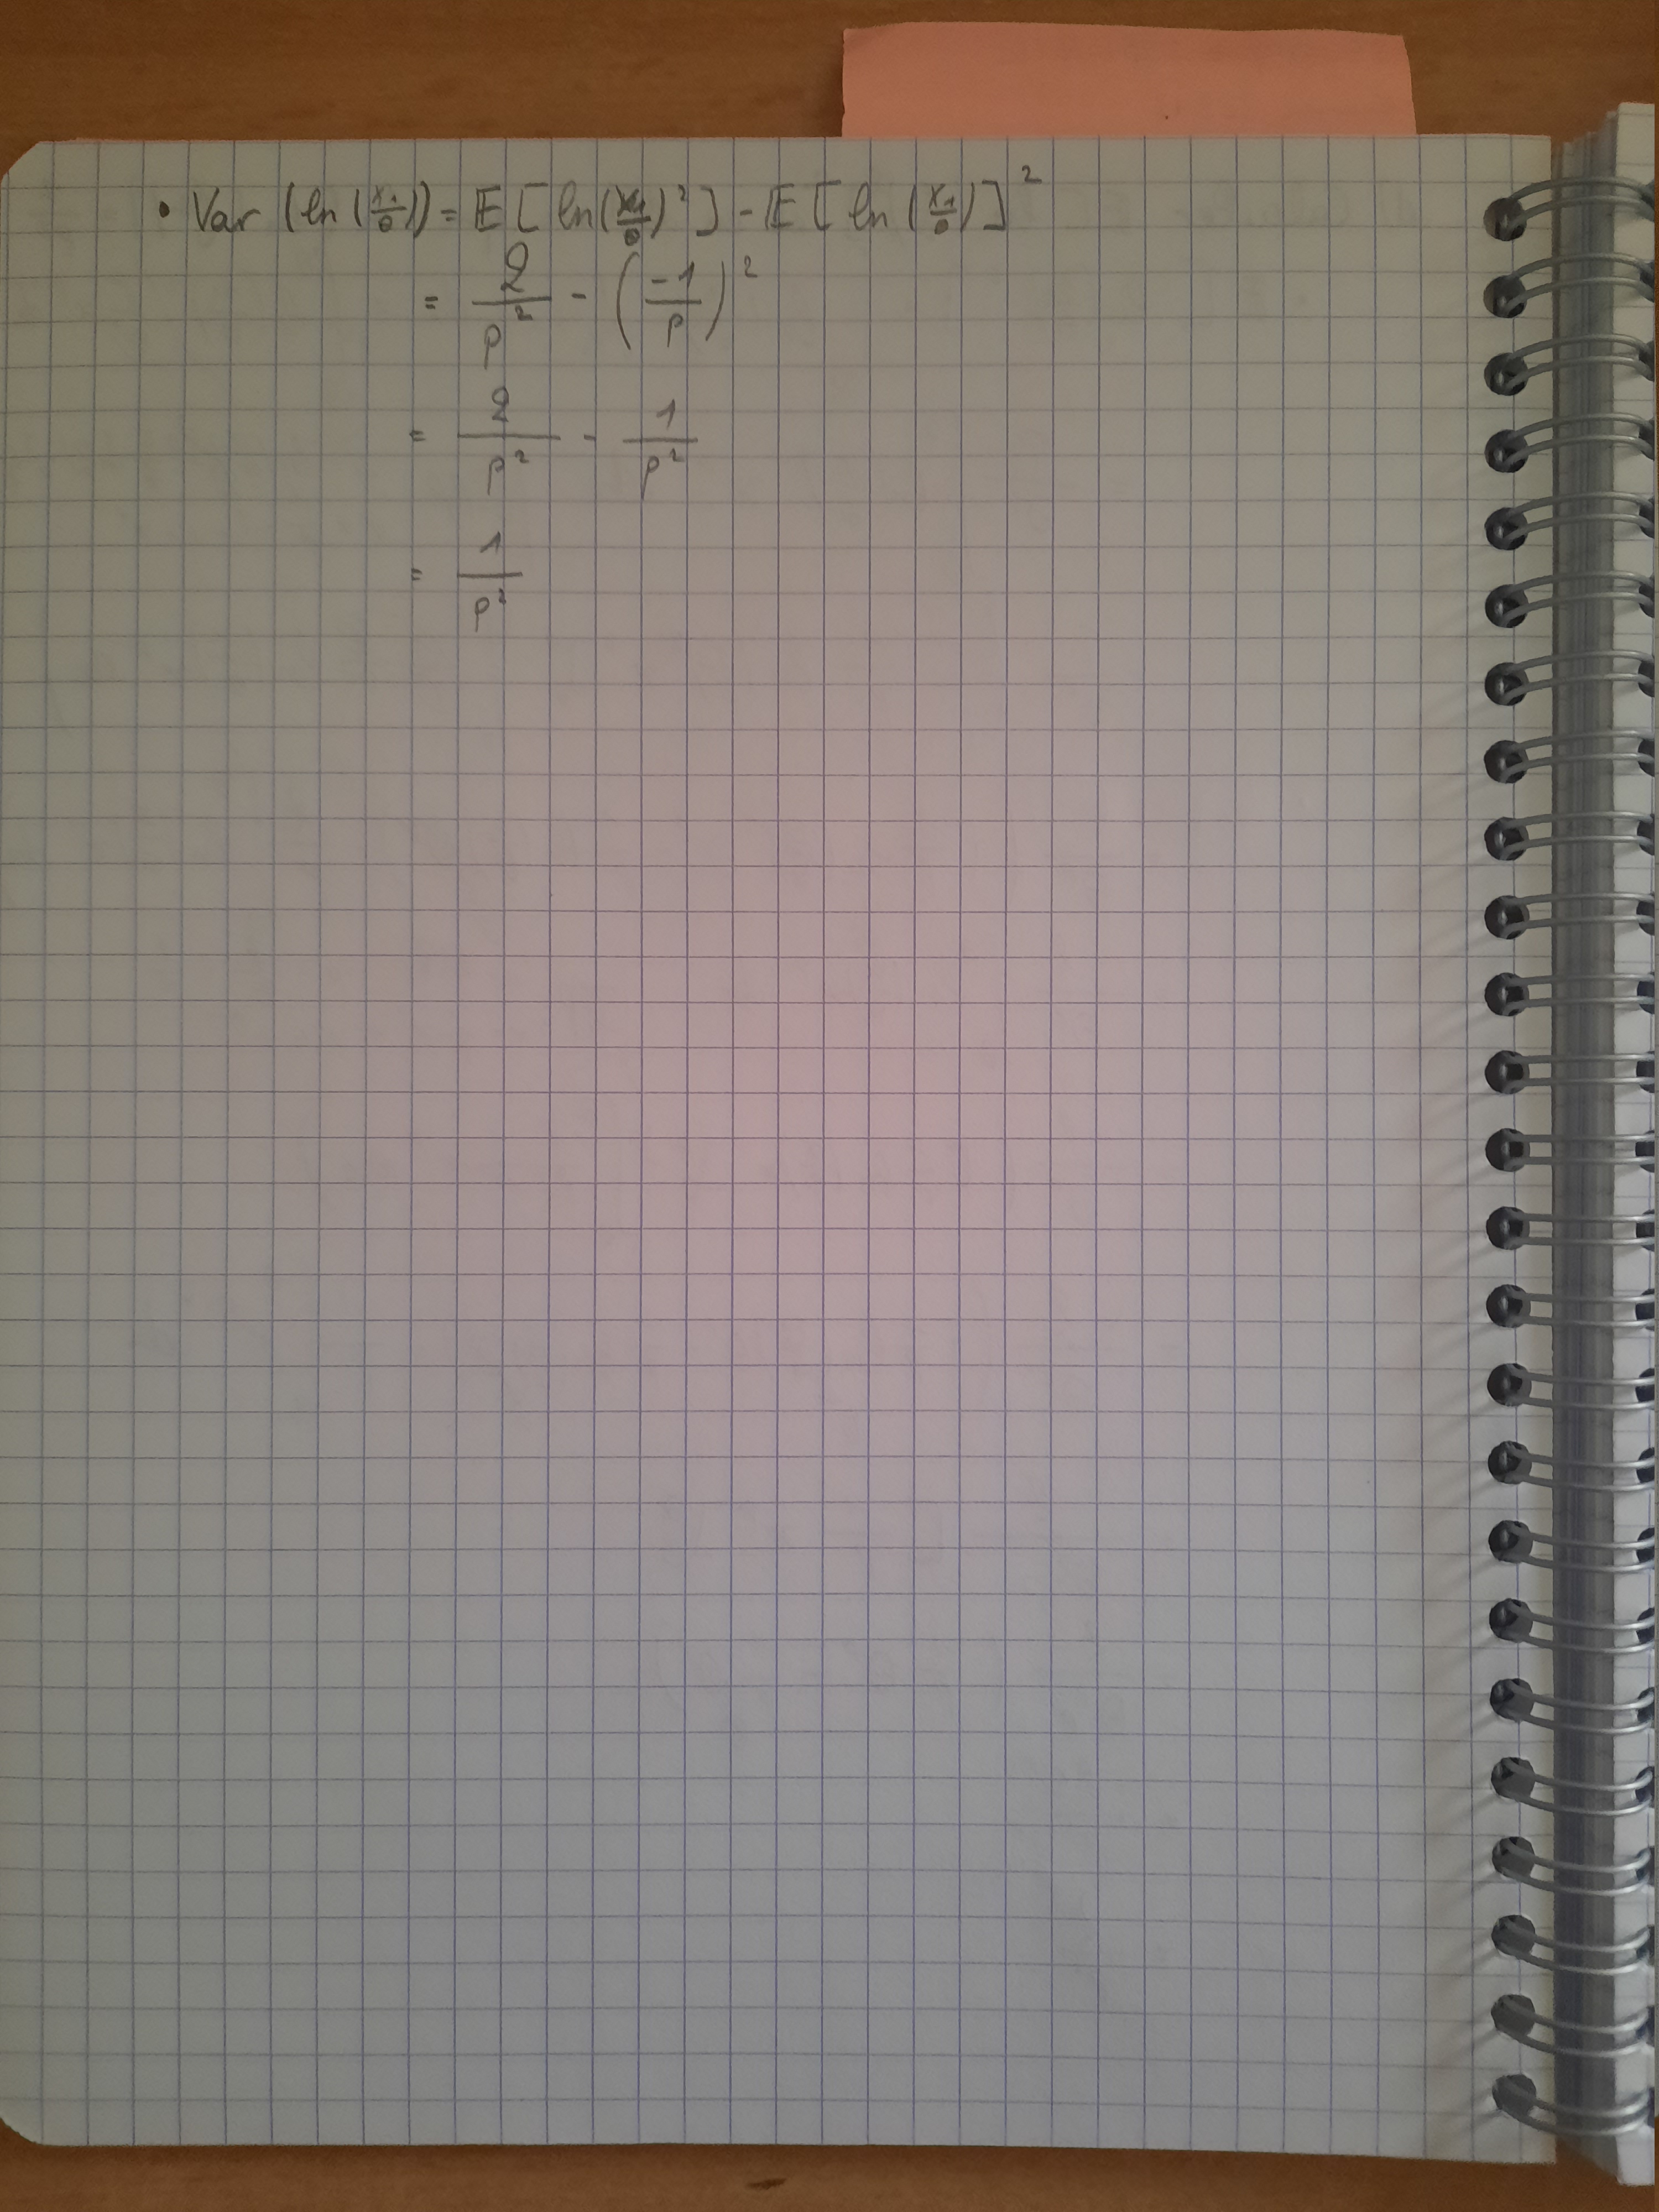 • Var (ln (X₁/θ)) = E [ ln(X₁/θ)² ] - E [ ln (X₁/θ) ]²
= 2/p² - (-1/p)²
= 2/p² - 1/p²
= 1/p²